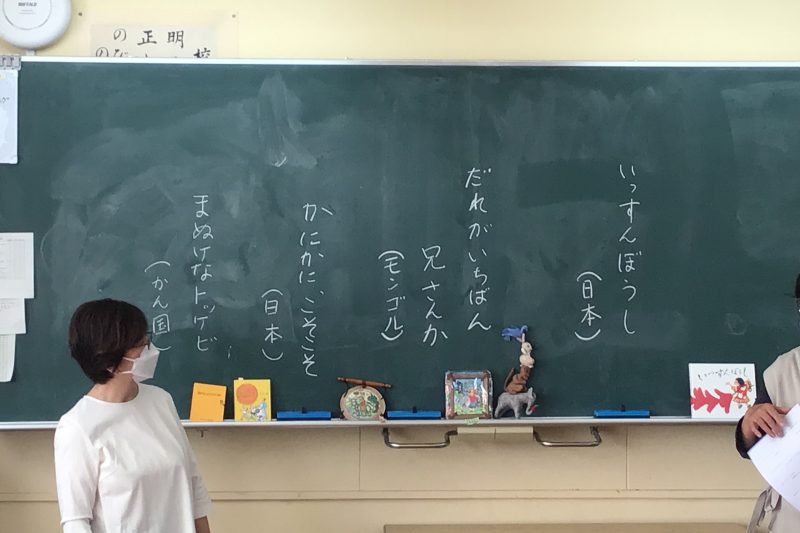 いっすんぼうし
（日本）
だれがいちばん
兄さんか
（モンゴル）
かにかに、こそこそ
（日本）
まぬけなトッケビ
（かん国）
いっすんぼうし
BUFFALO
明正の